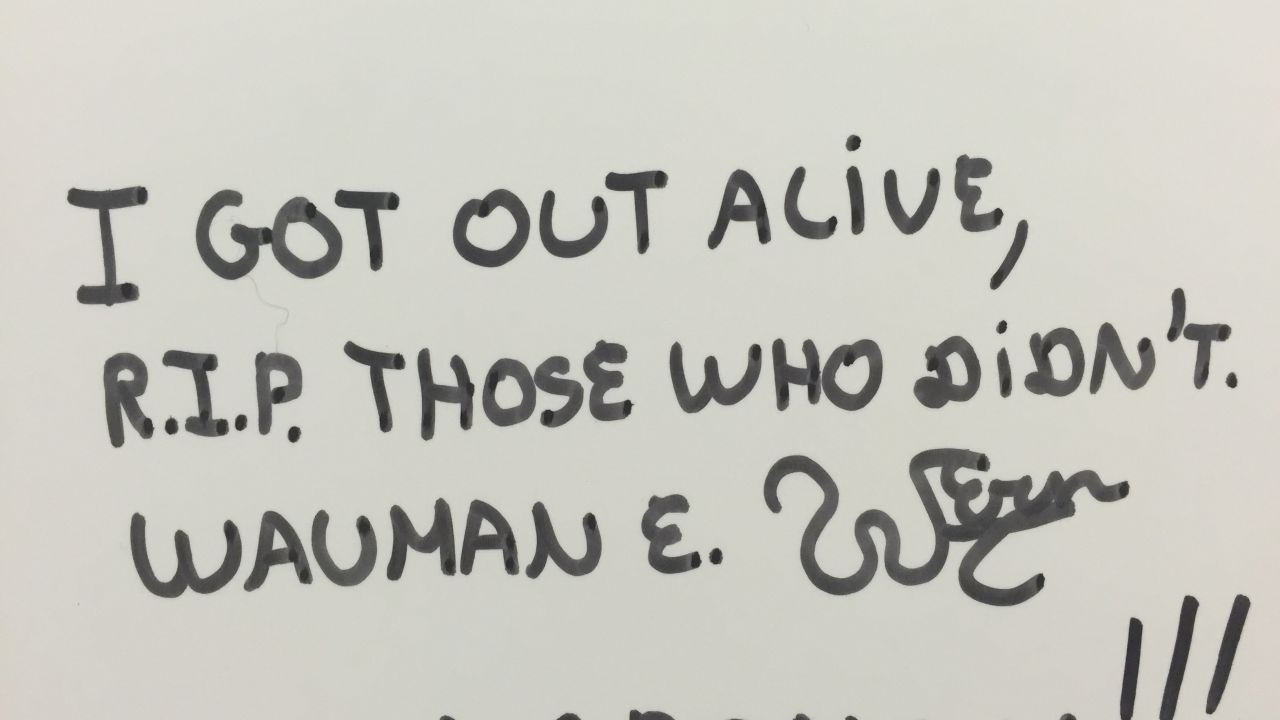 I GOT OUT ALiVE,
R.I.P. THOSE WHO DiDN'T.
WAUMAN E.
!!!